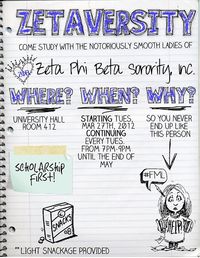 ZETAVERSITY
COME STUDY WITH THE NOTORIOUSLY SMOOTH LADIES OF
Zeta Phi Beta Sorority, Inc.
WHERE? WHEN? WHY?
UNIVERSITY HALL
ROOM 412
STARTING TUES,
MAR 27TH, 2012
CONTINUING
EVERY TUES.
FROM 7PM-9PM
UNTIL THE END OF
MAY
SO YOU NEVER
END UP LIKE
THIS PERSON
SCHOLARSHIP
FIRST!
#FML
SNACKS
** LIGHT SNACKAGE PROVIDED